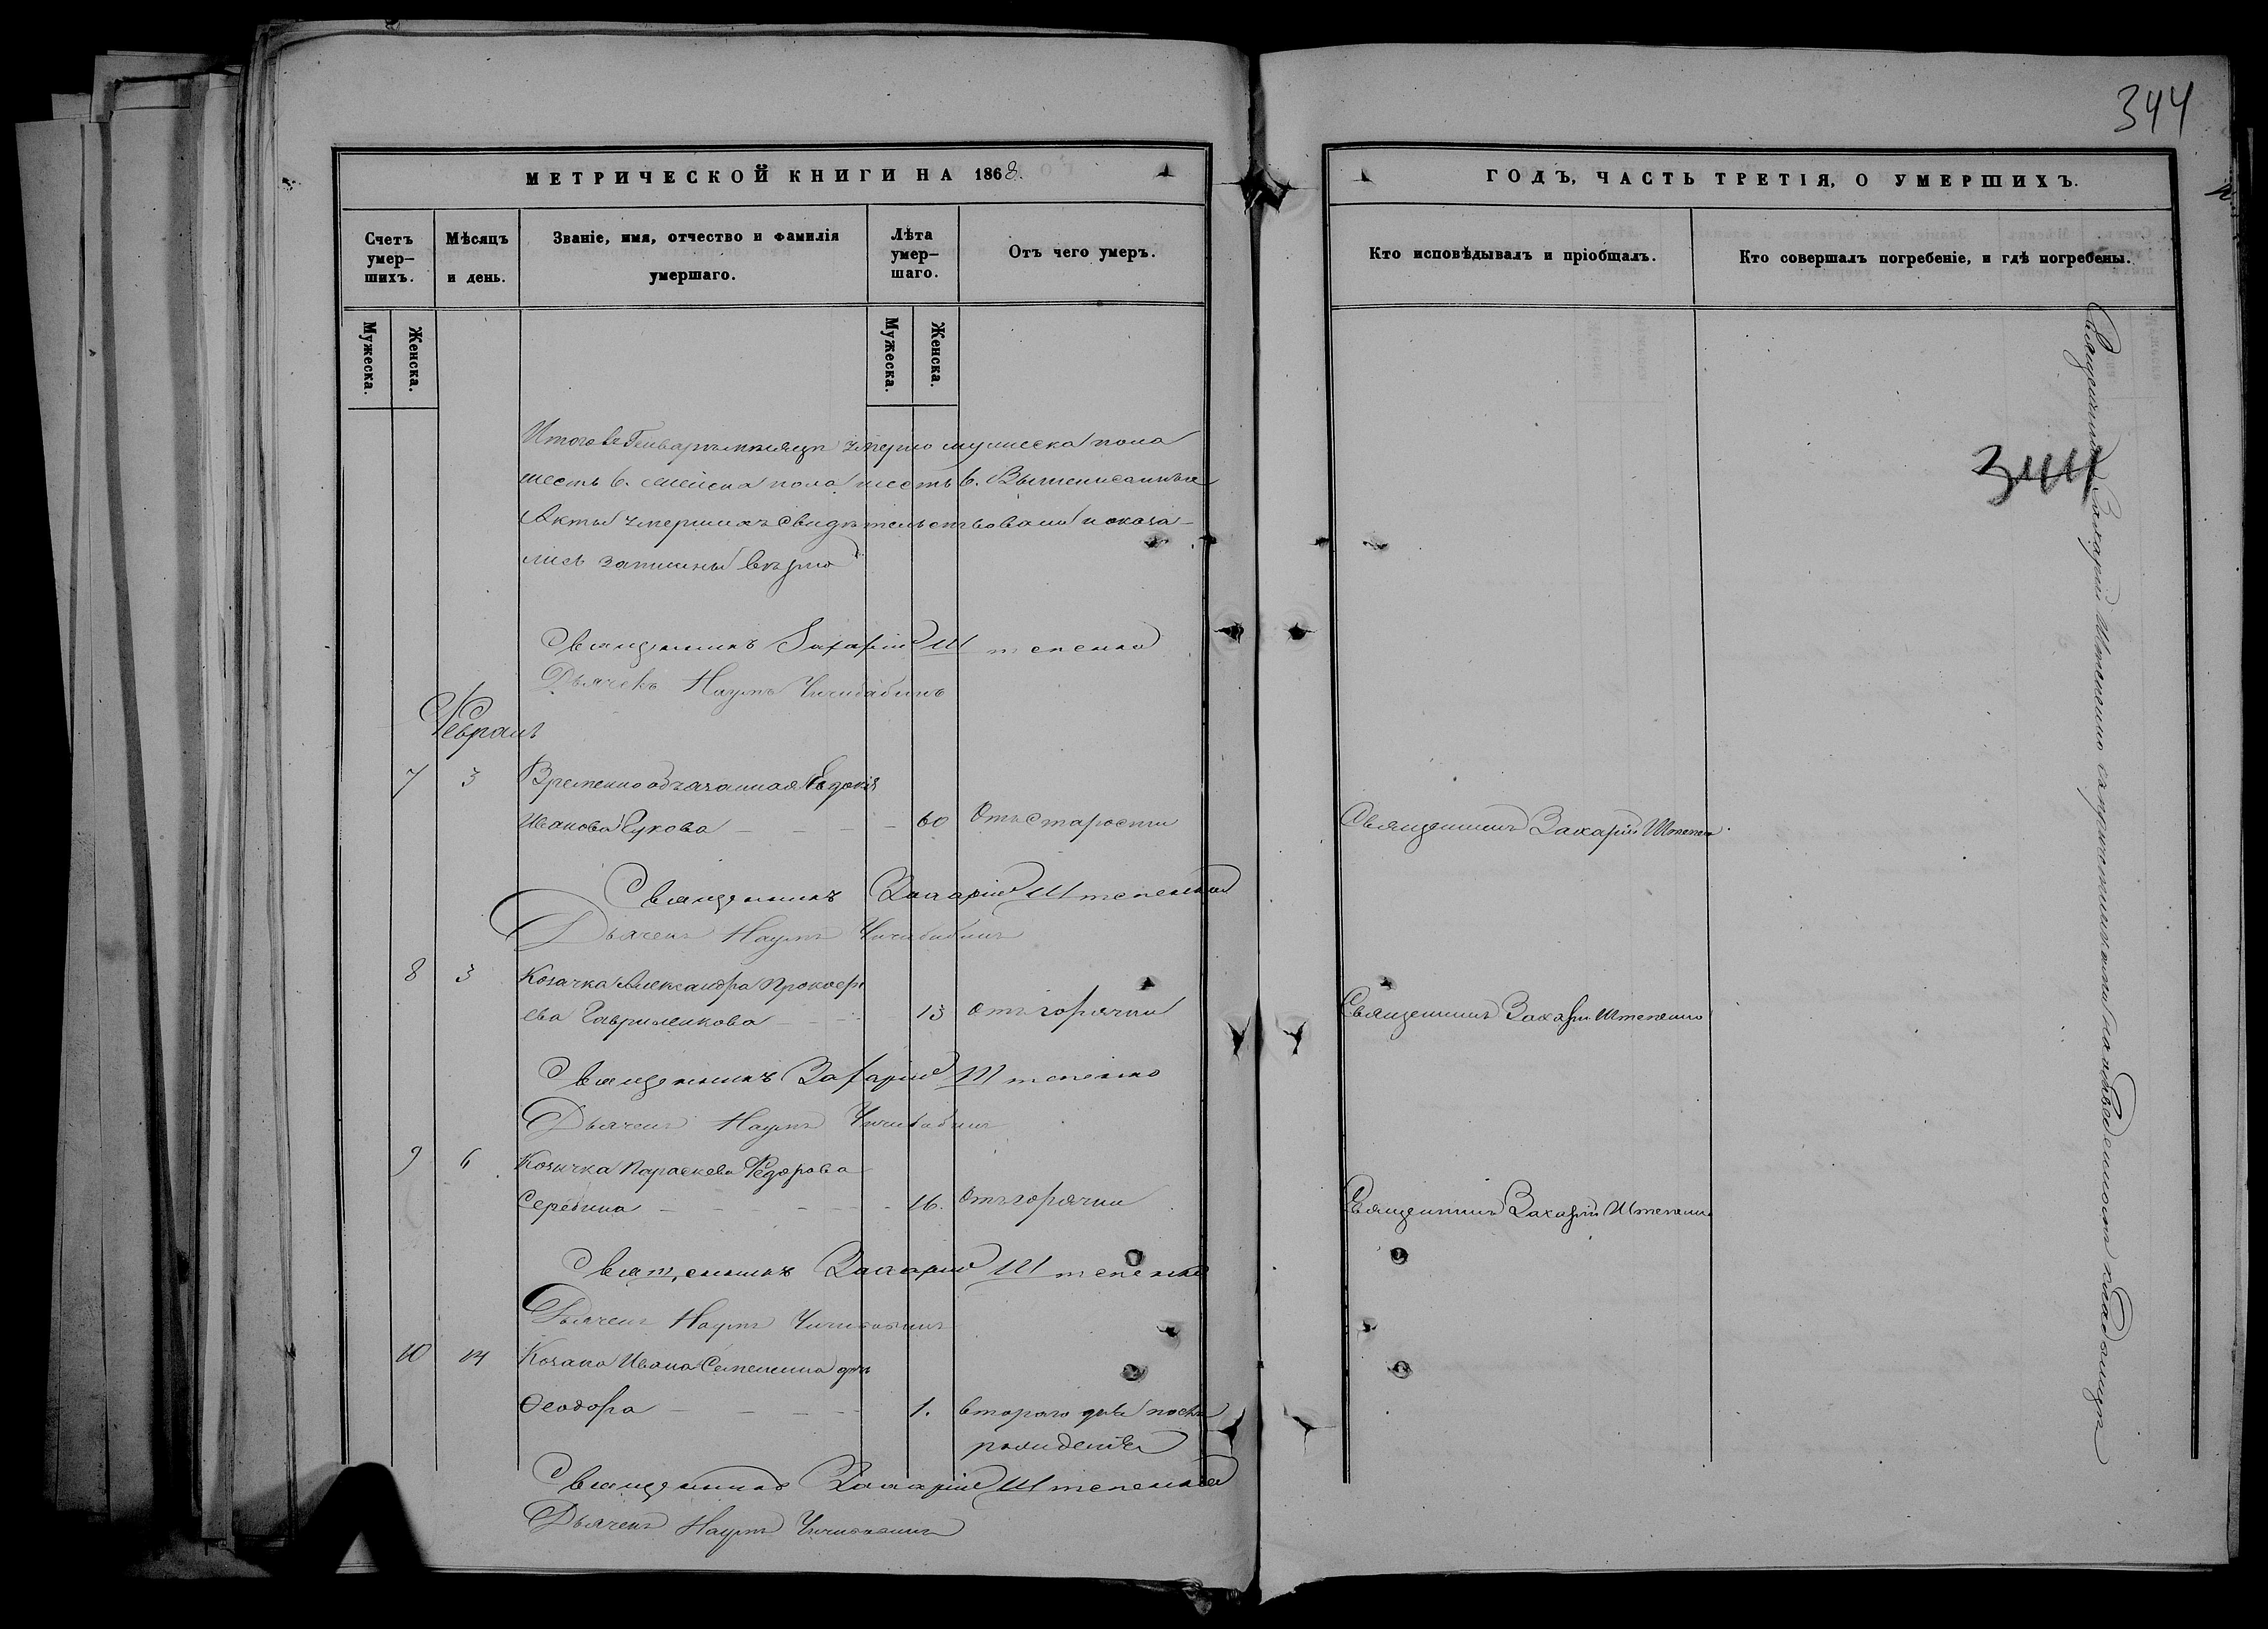 344
МЕТРИЧЕСКОЙ КНИГИ НА 1868.
ГОДЪ, ЧАСТЬ ТРЕТІЯ, О УМЕРШИХЪ.
Счетъ умер-шихъ.
Мѣсяцъ и день.
Званіе, имя, отчество и фамилія умершаго.
Лѣта умер-шаго.
Отъ чего умеръ.
Кто исповѣдывалъ и пріобщалъ.
Кто совершалъ погребеніе, и гдѣ погребены.
Мужеска.
Женска.
Мужеска.
Женска.
Итого въ Генварѣ мѣсяцѣ умерло мужеска пола
шесть 6. женска пола шесть 6. Вышеписанные
Акты умершихъ свидѣтельствовали и оказа-
лись записаны вѣрно
344
Священникъ Захарій Штепенко
Дьячекъ Наумъ Чичибабинъ
Февраль
7 3 Временнообязанная Евдокія
Иванова 60 Отъ старости Священникъ Захарій Штепен
Священникъ Захарій Штепенко
Дьячекъ Наумъ Чичибабинъ
8 3 Козачка Александра Прокофі
ева Гавриленкова 13 отъ горячки Священникъ Захарій Штепенко
Священникъ Захарій Штепенко
Дьячекъ Наумъ Чичибабинъ
9 6 Козачка Параскева Федорова
Середина 16. Отъ горячки Священникъ Захарій Штепенко
Священникъ Захарій Штепенко
Дьячекъ Наумъ Чичибабинъ
10 14 Козака Ивана Семенина дчь
Феодора 1. втораго дня послѣ
рожденія
Священникъ Захарій Штепенко
Дьячекъ Наумъ Чичибабинъ
Священникъ Захарій Штепенко съ причетниками на отведенномъ кладбищѣ